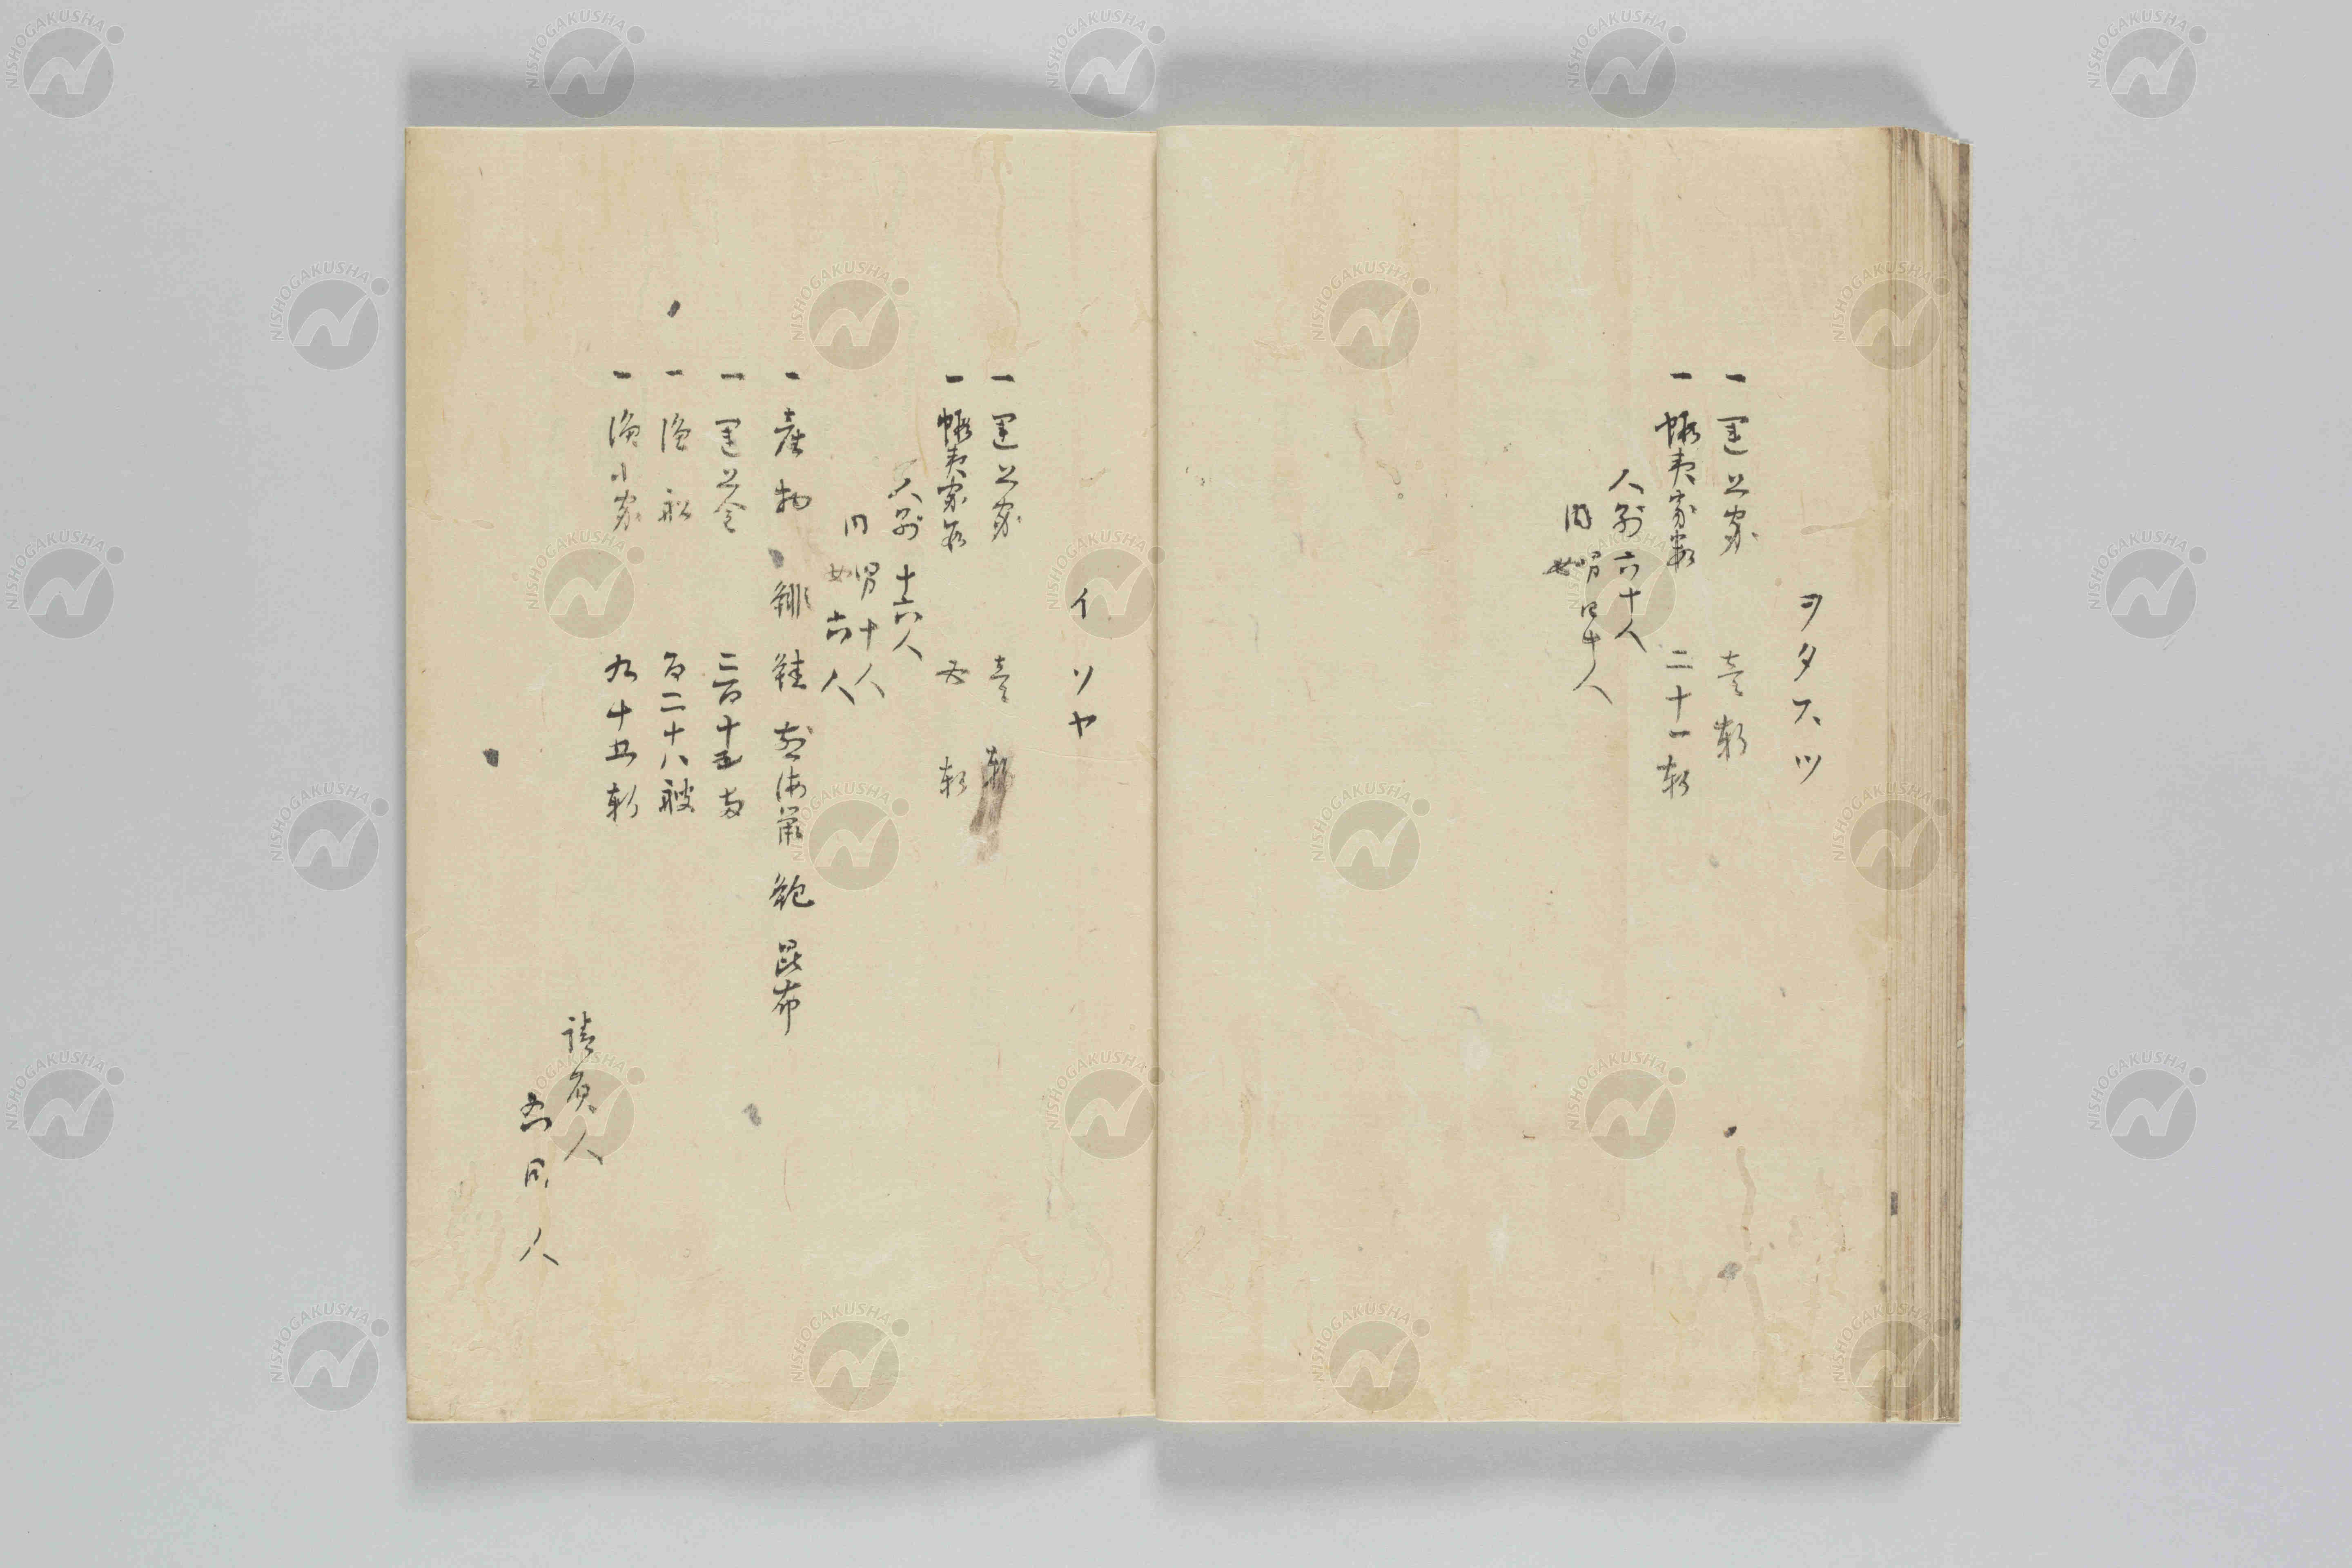 ヲタスツ
一 運上家 壱軒
一 蝦夷家数 二十一軒
人別六十人
内 男
女 四十人
イソヤ
一 運上家 壱軒
一 蝦夷家数 五軒
人別 十六人
内 男十人
女六人
一 産物 鯡 鮭 煎海鼠 鮑 昆布
一 運上金 二百十五両
一 漁船 百二十八艘
一 漁小家 九十五軒
請負人
右同人
NISHOGAKUSHA